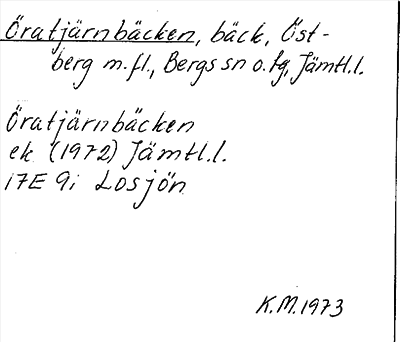 Öratjärnbäcken, bäck, Öst-
berg m.fl., Bergs sn o. tg, Jämtl.l.
Öratjärnbäcken
ek (1972) Jämtl.l.
17E 9i Losjön
K.M. 1973